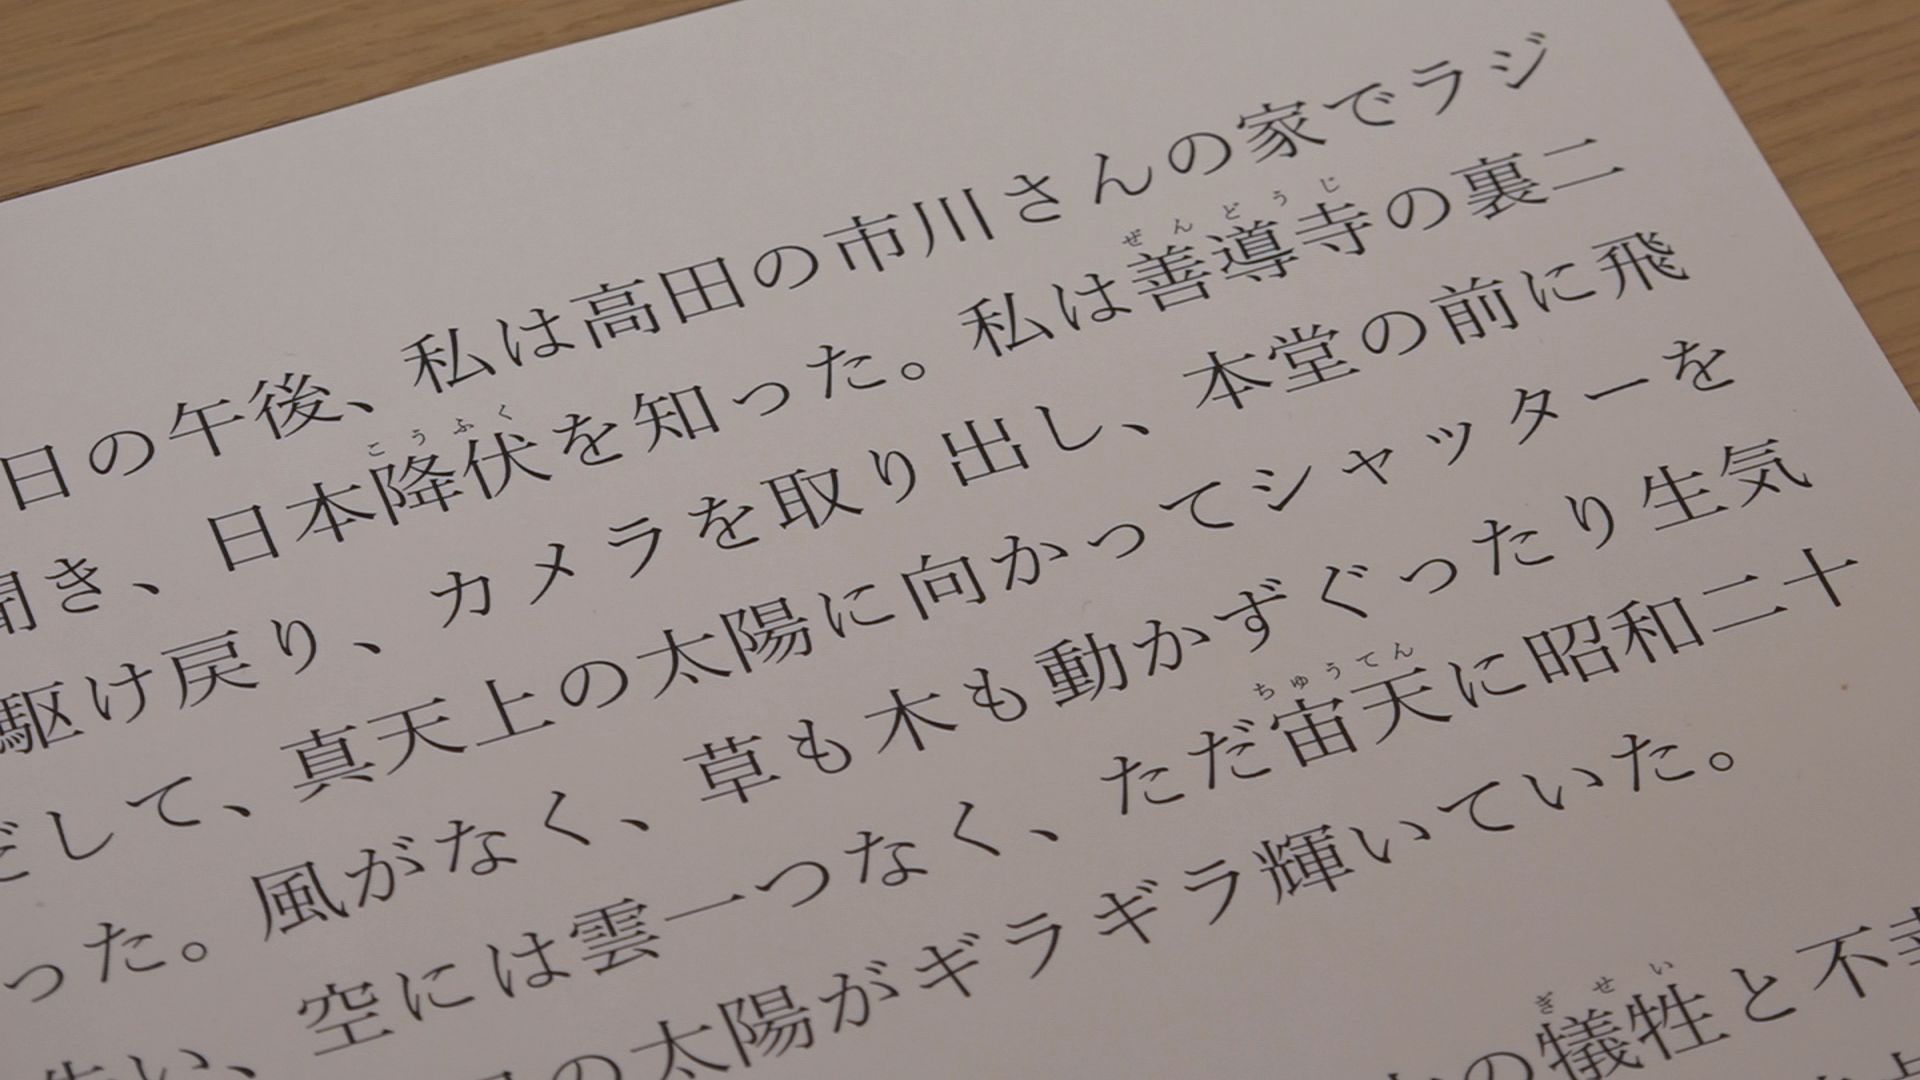 日の午後、私は高田の市川さんの家でラジ
聞き、日本降伏を知った。私は善導寺の裏二
こうふく
ぜんどうじ
駆け戻り、カメラを取り出し、本堂の前に飛
だして、真天上の太陽に向かってシャッターを
った。風がなく、草も木も動かずぐったり生気
失い、空には雲一つなく、ただ宙天に昭和二十
ちゅうてん
の太陽がギラギラ輝いていた。
の犠牲と不幸
ぎせい